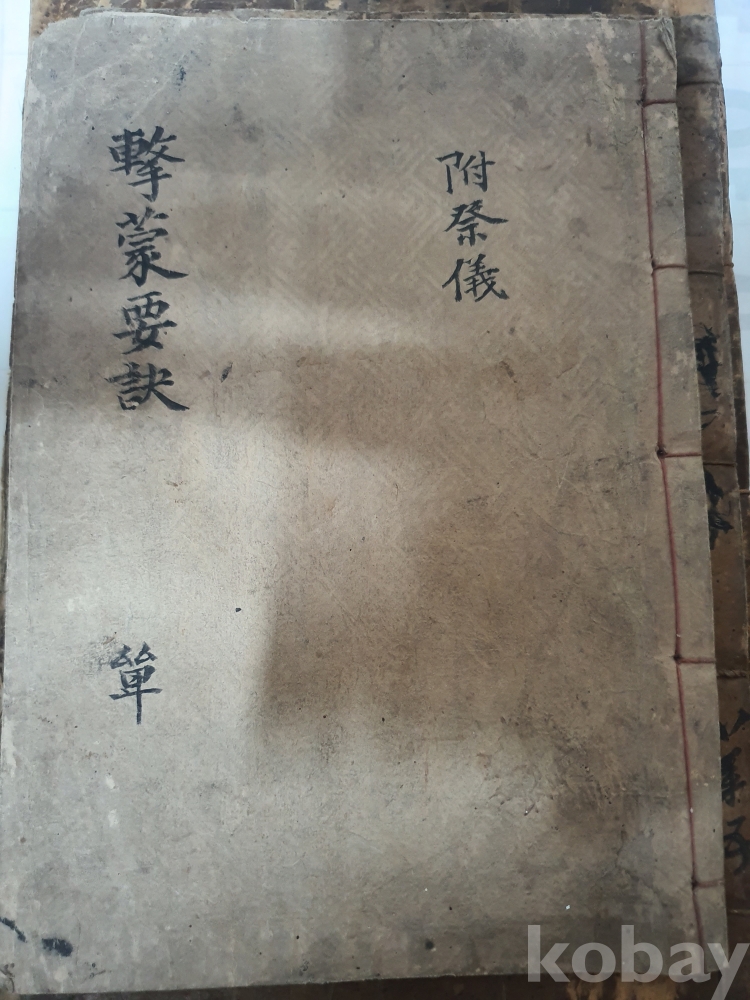 擊蒙要訣
單
附祭儀
kobay